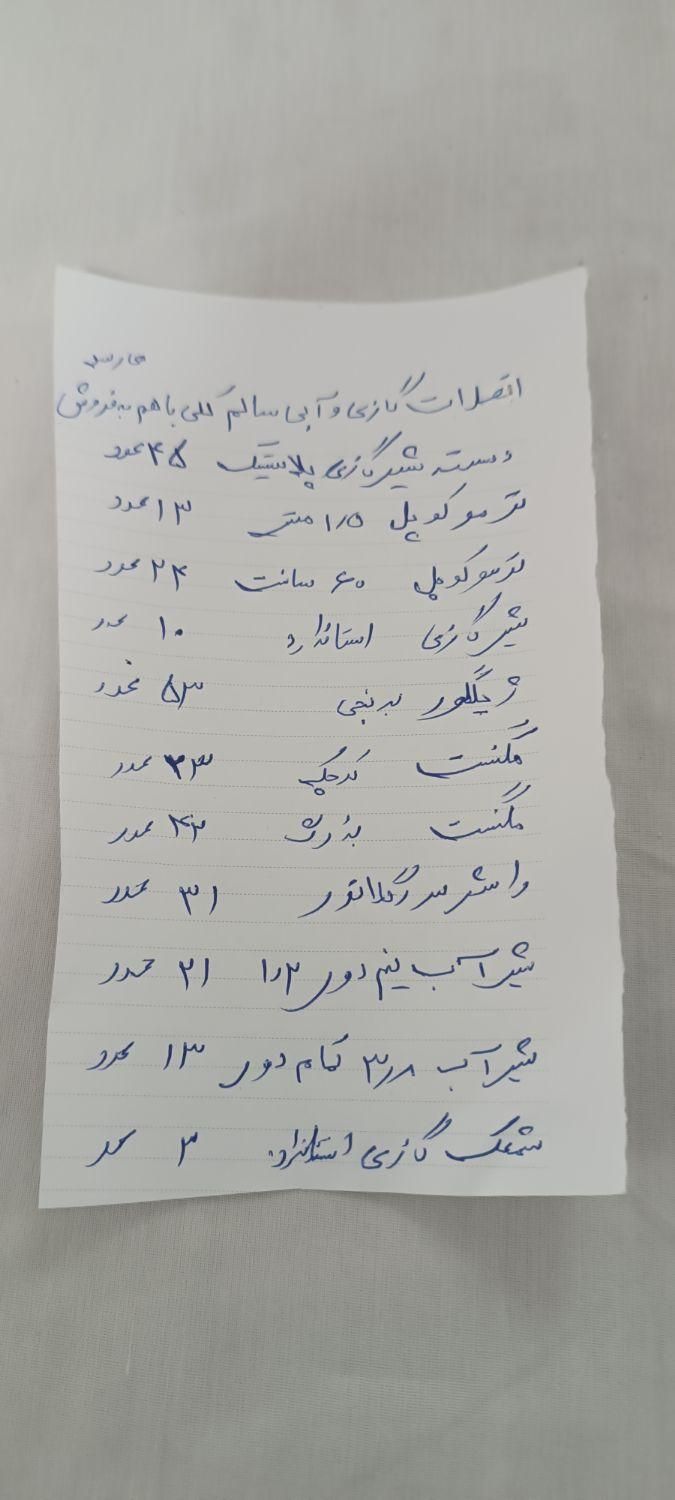 اتصلات گازی و آبی سالم کلی باهم به فروش
می رسد
دسته شیر گازی پلاستیک ۴۵ عدد
ترموکوپل ۱/۵ متری ۱۳ عدد
ترموکوپل ۶۰ سانت ۲۴ عدد
شیر گازی استاندارد ۱۰ عدد
ژیگلور برنجی ۵۳ عدد
مگنت کوچک ۲۳ عدد
مگنت بزرگ ۴۳ عدد
واشر سر رگلاتور ۳۱ عدد
شیر آب نیم دور ۱/۲ ۲۱ عدد
شیر آب ۳/۸ تمام دور ۱۳ عدد
شمعک گازی استاندارد ۳ عدد